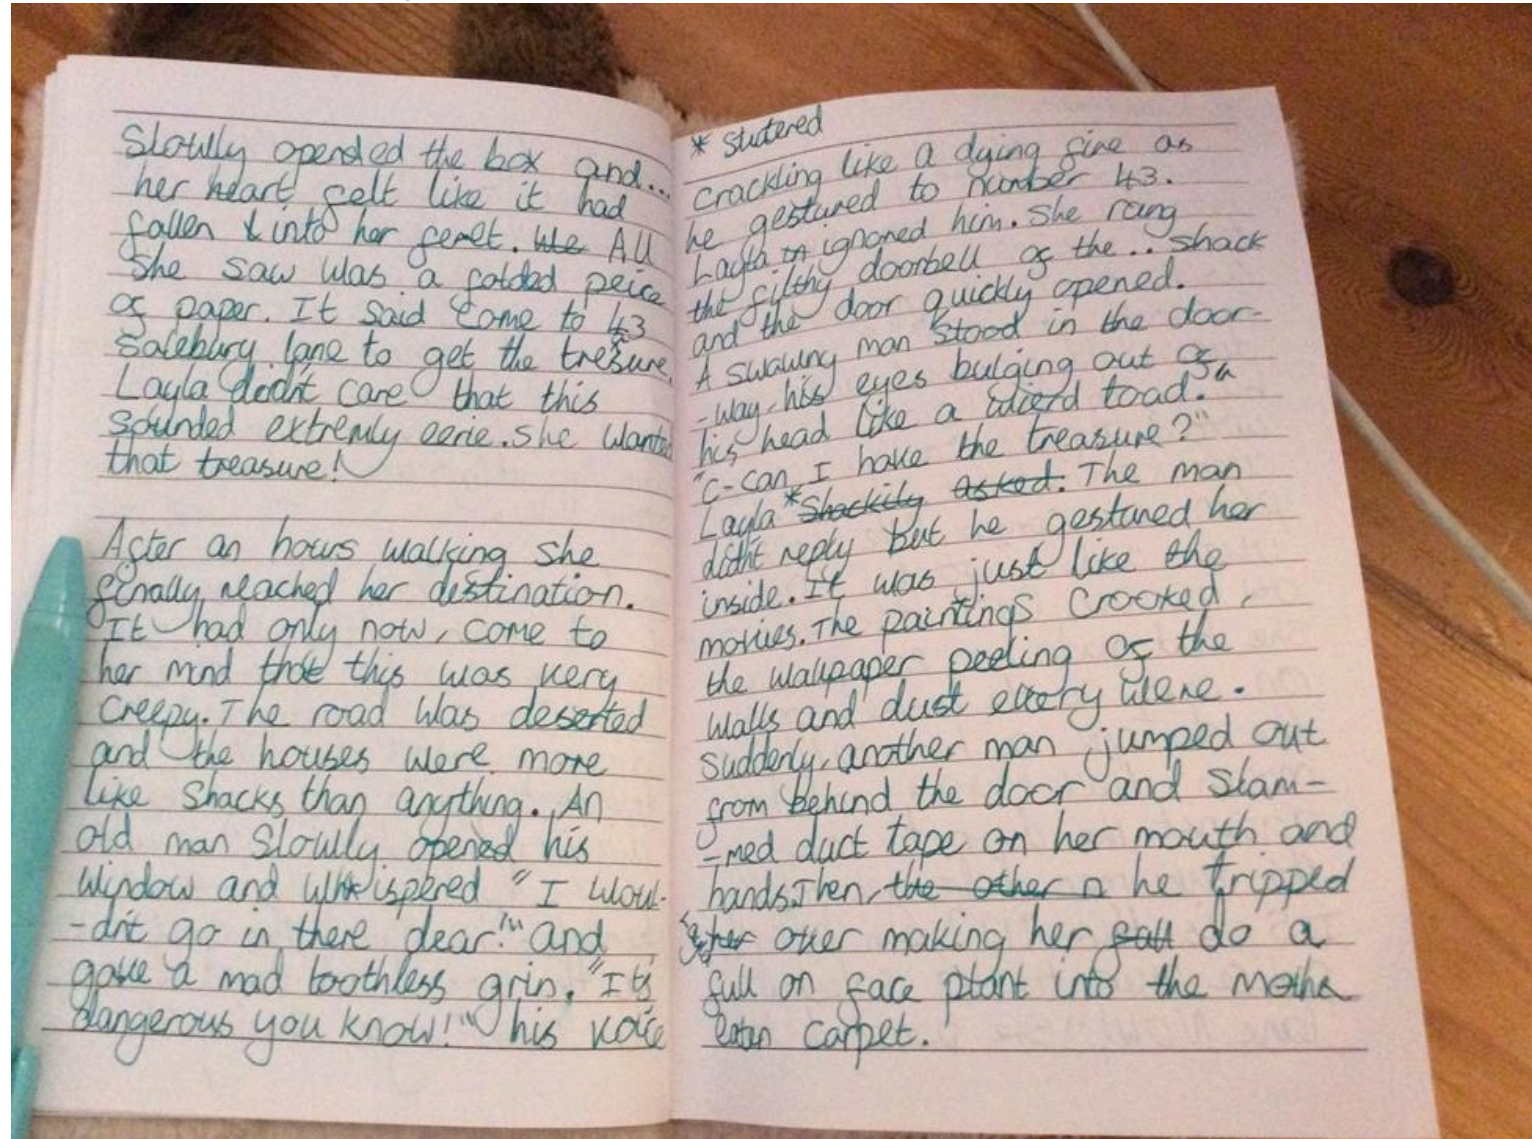 Slowlly opended the box and...
her heart felt like it had
fallen & into her feret. We All
She saw was a folded peice
of paper. It said come to 43
Salebury lane to get the tresure.
Layla didn't care that this
sounded extremly eerie. She wanted
that treasure!
After an hours walking she
finally reached her destination.
It had only now, come to
her mind that this was very
creepy. The road was deserted
and the houses were more
like shacks than anything. An
old man Slowlly opened his
window and whispered "I woul-
-dn't go in there dear!" and
gave a mad toothless grin. "It's
dangerous you know!" his voice
* stutered
crackling like a dying fire as
he gestured to number 43.
Layla ignored him. She rang
the filthy doorbell of the... shack
and the door quickly opened.
A swaying man stood in the door-
-way, his eyes bulging out of
his head like a wierd toad.
"C-can I have the treasure?"
Layla * Shockily asked. The man
didn't reply but he gestured her
inside. It was just like the
movies. The paintings crooked,
the wallpaper peeling of the
walls and dust every were.
Suddenly, another man jumped out
from behind the door and Slam-
-med duct tape on her mouth and
hands. Then, the other n he tripped
her over making her fall do a
full on face plant into the moth
eaten carpet.